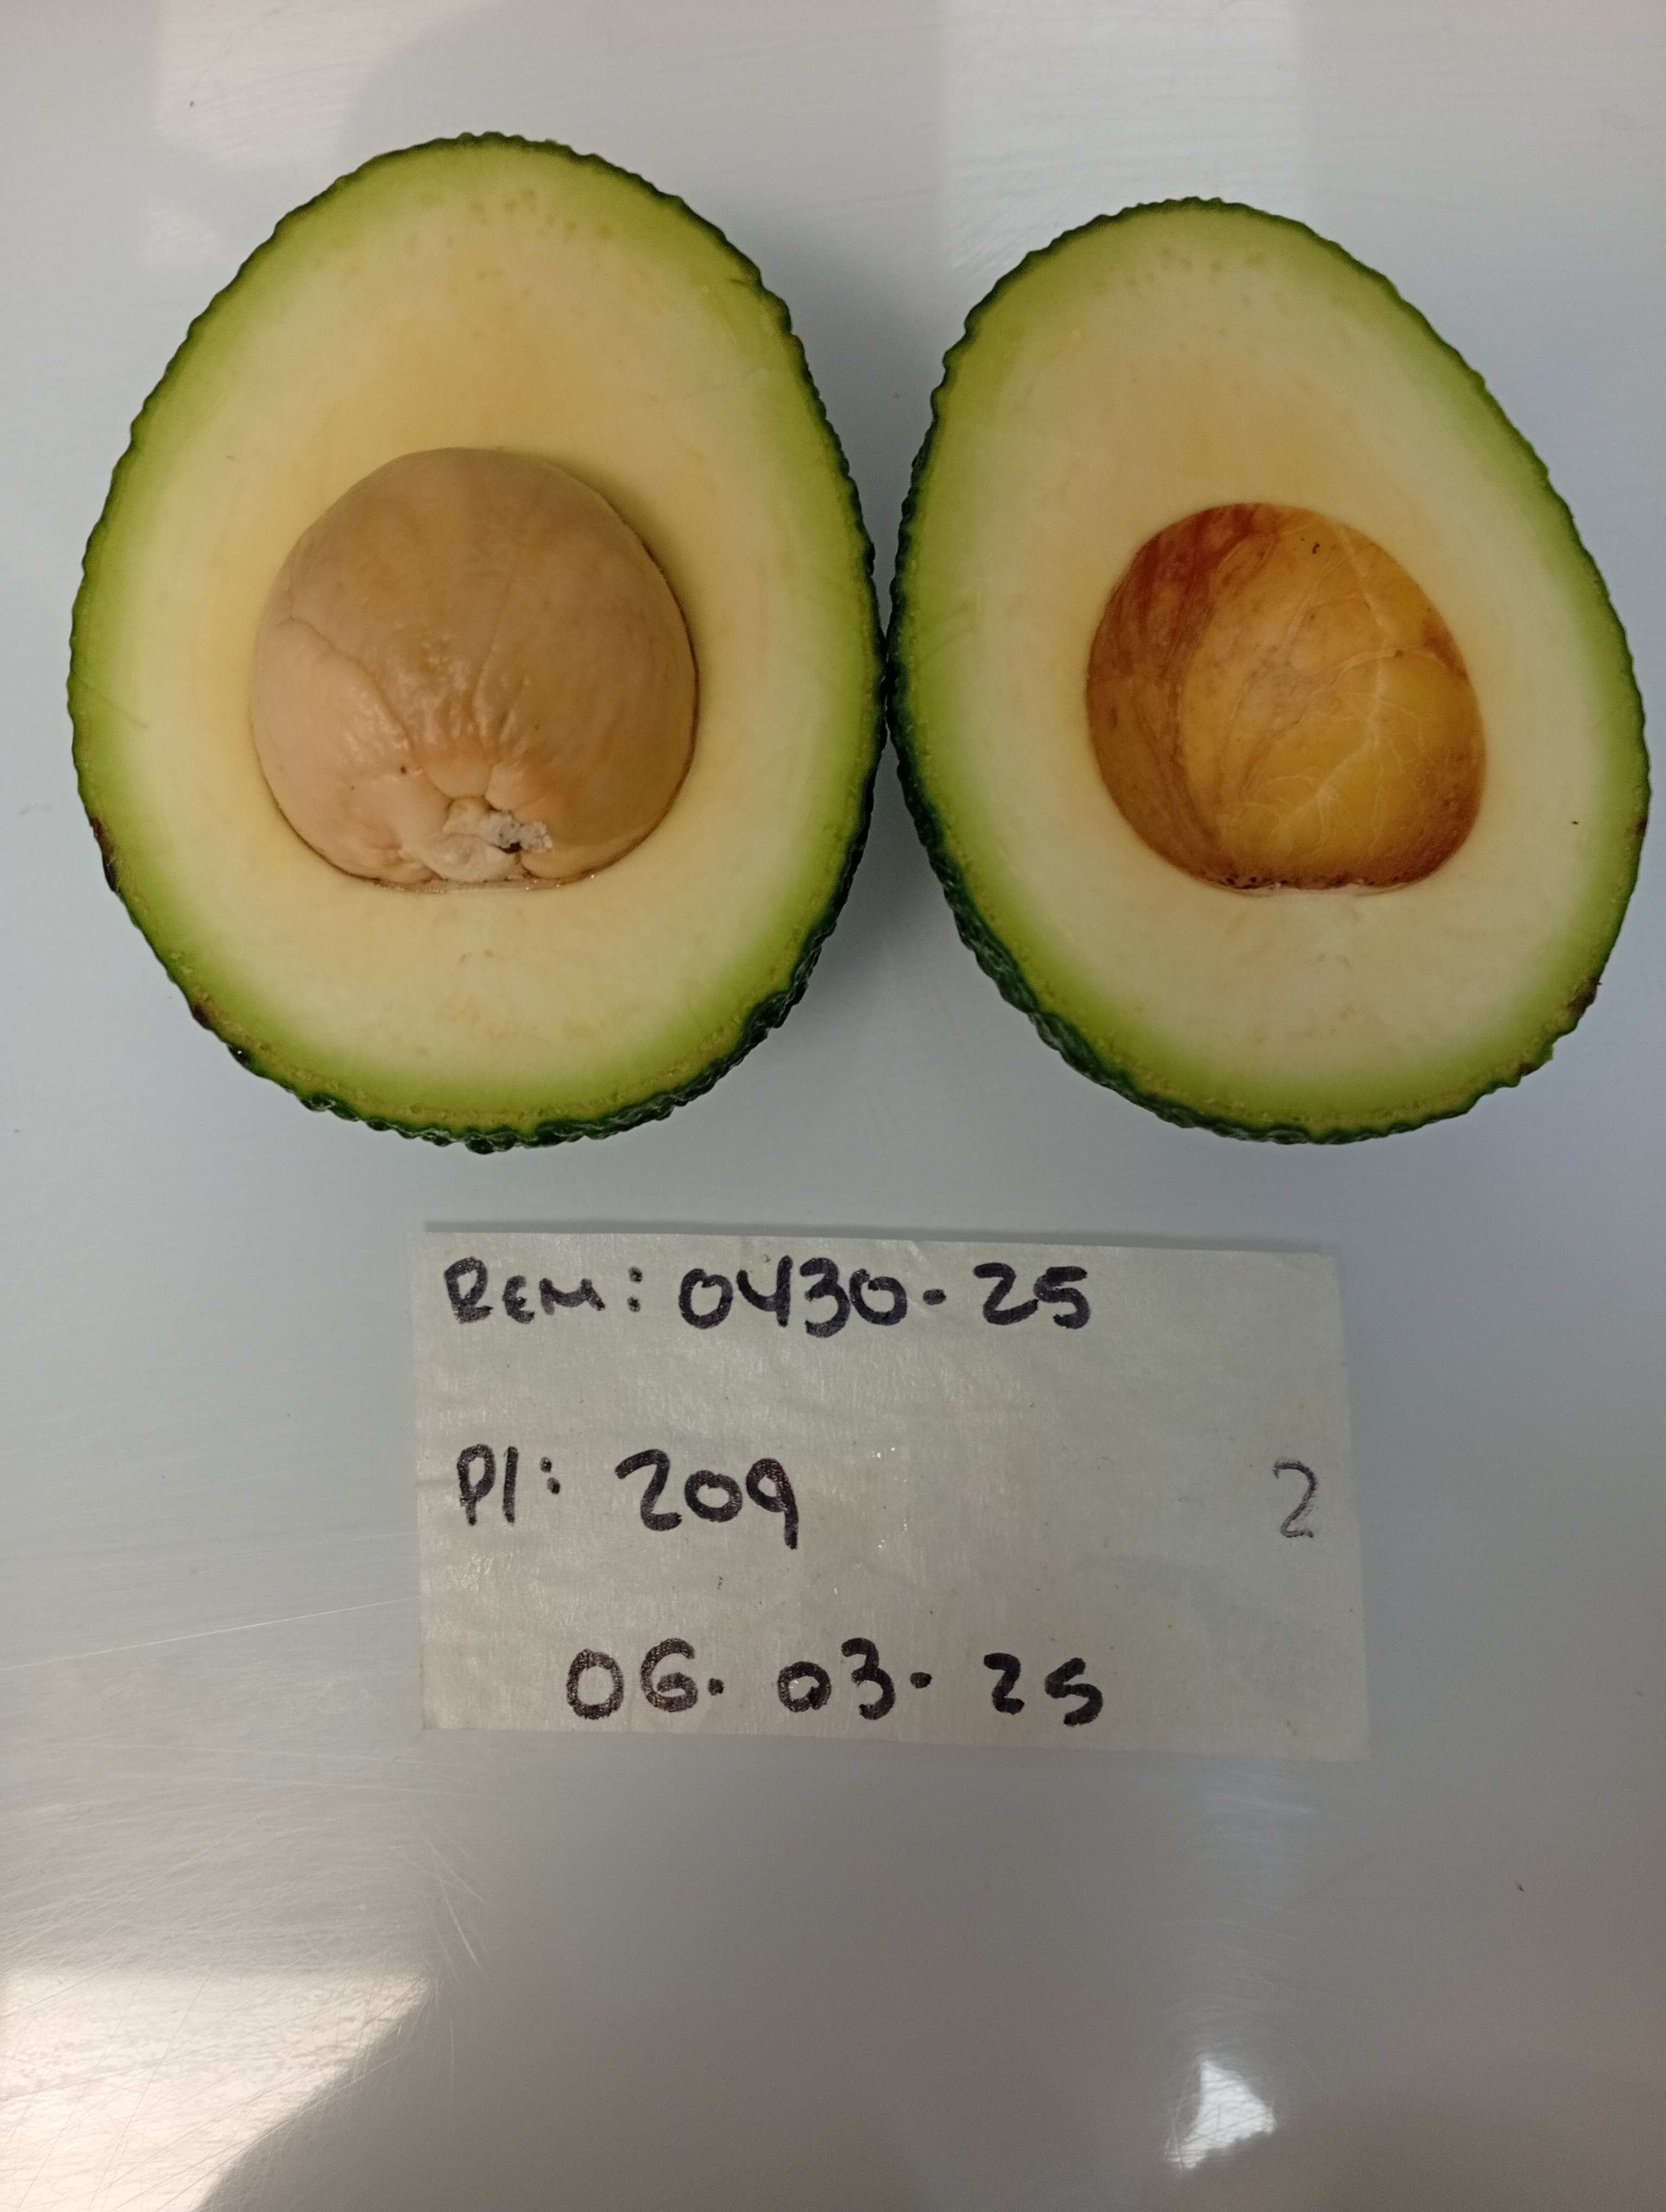 REM: 0430-25
PI: 209 2
06. 03. 25